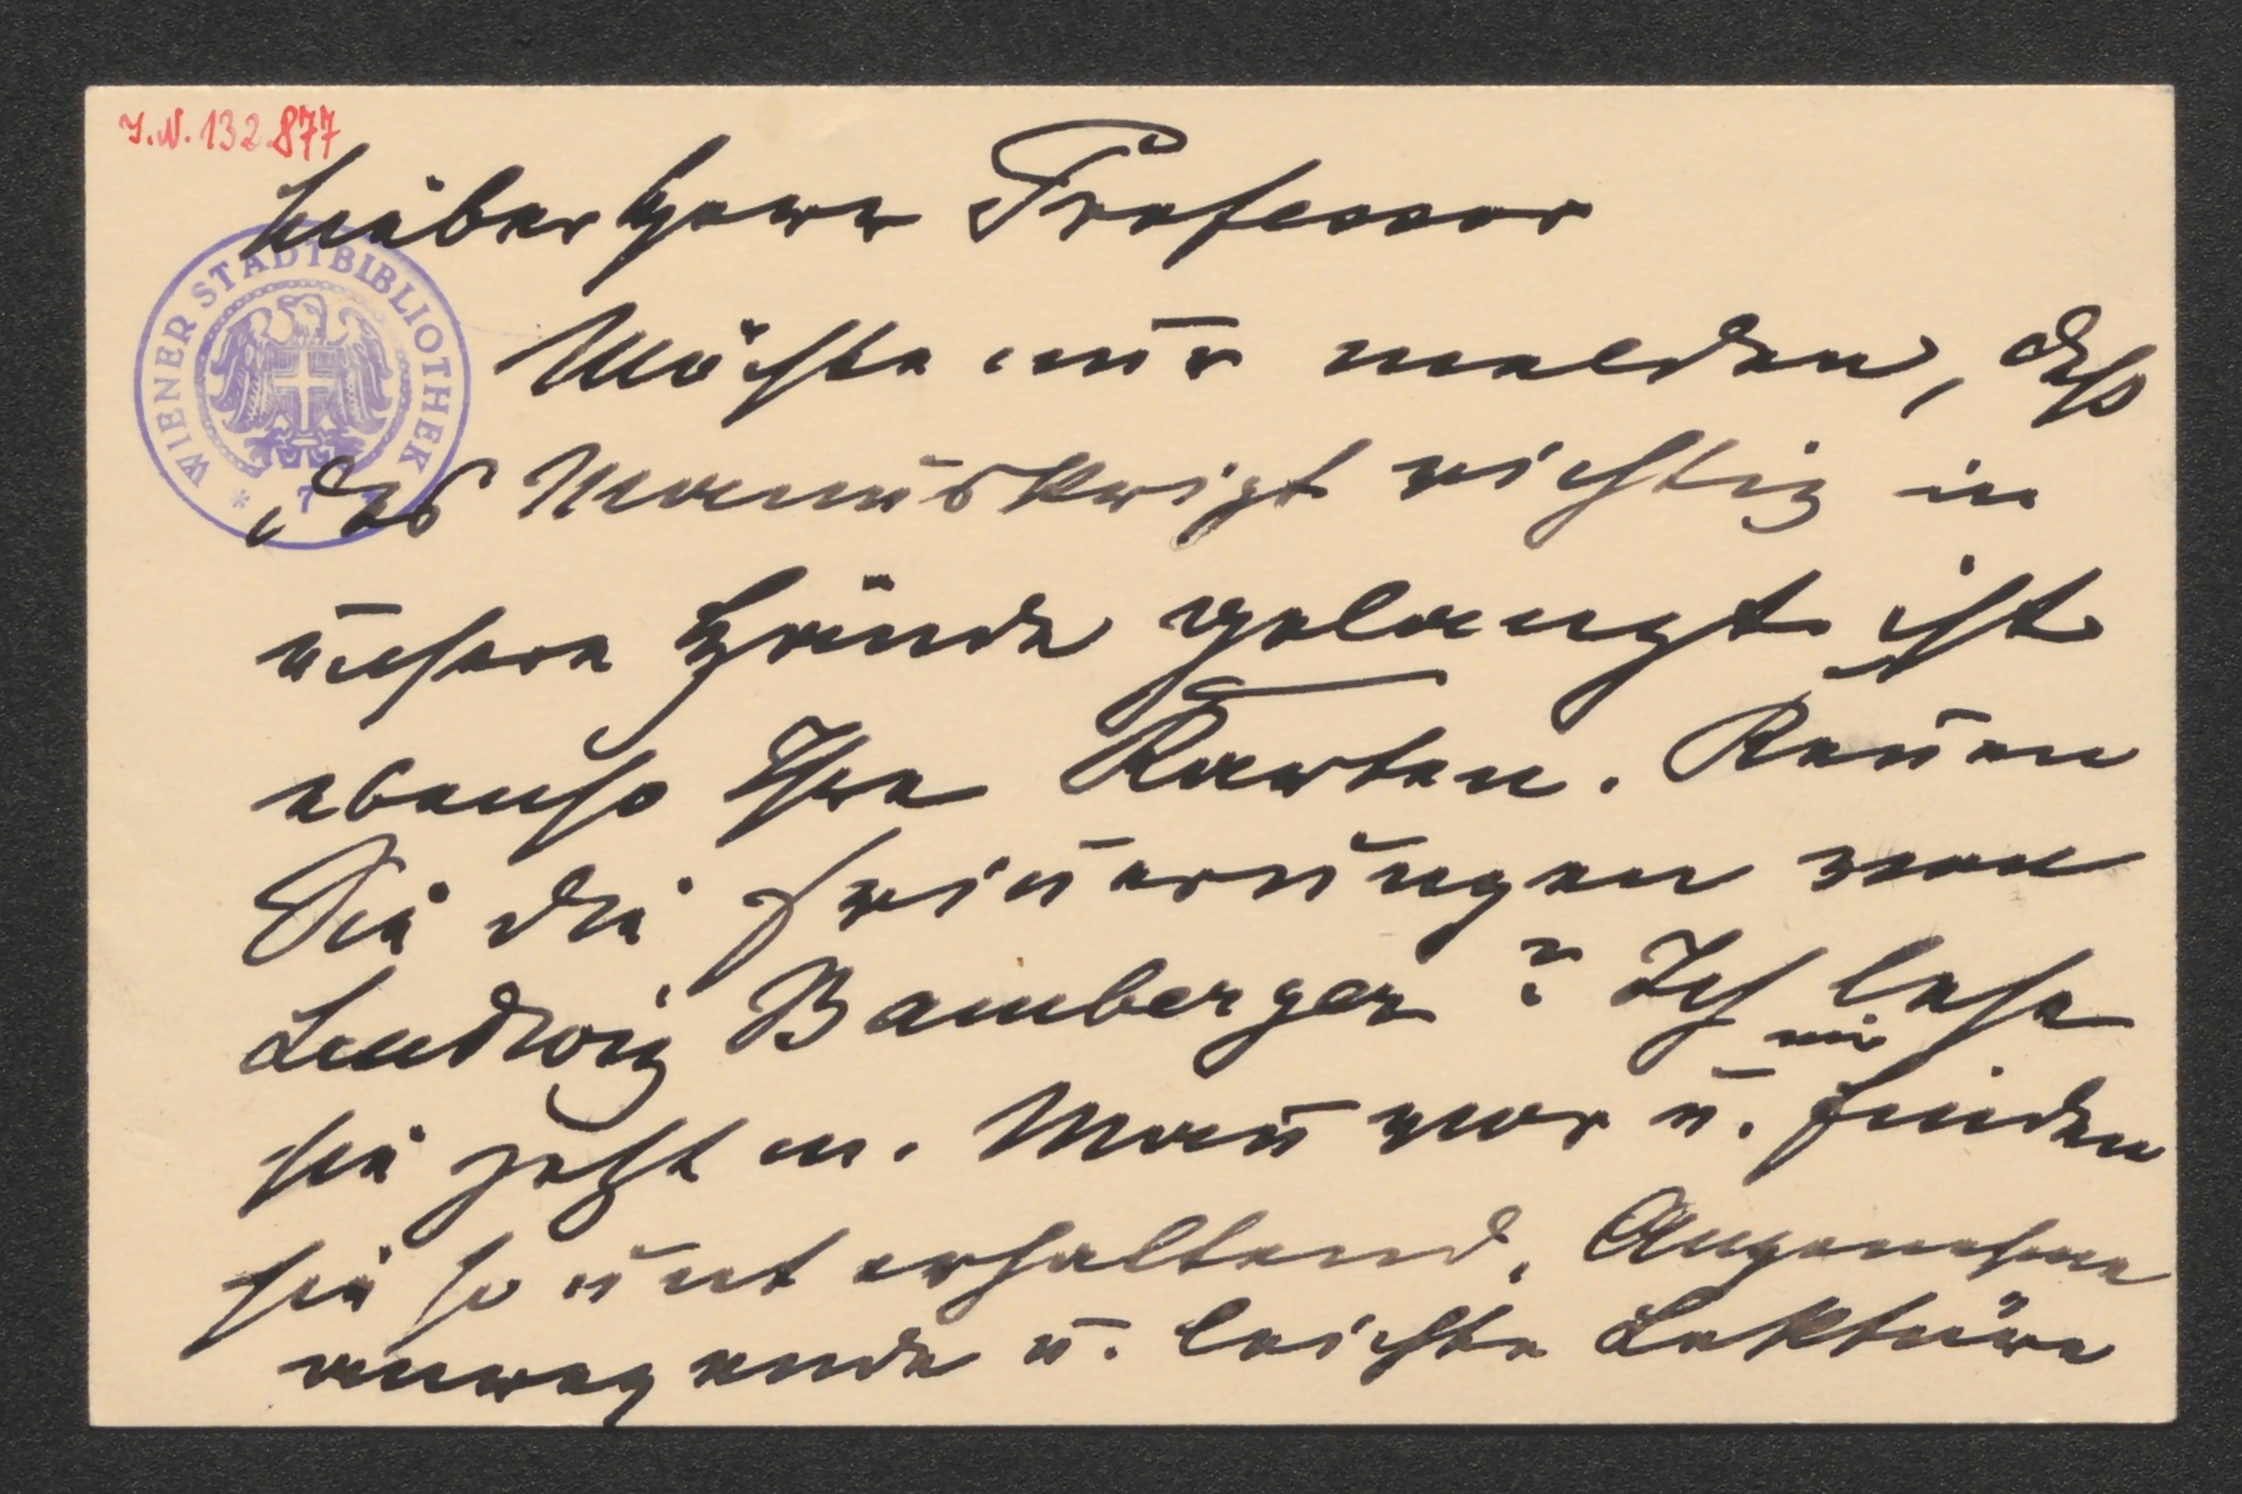 I.N. 132.877
Lieber Herr Professor
Möchte nur melden, daß
das Manuskript richtig in
unsere Hände gelangt ist
ebenso Ihre Karten. Keñen
Sie die Eriñerungen von
Ludwig Bamberger? Ich lese
sie jetzt m. Mañ vor u. finden
wir
sie so unterhaltend. Angenehme
anregende u. leichte Lektüre
WIENER STADTBIBLIOTHEK